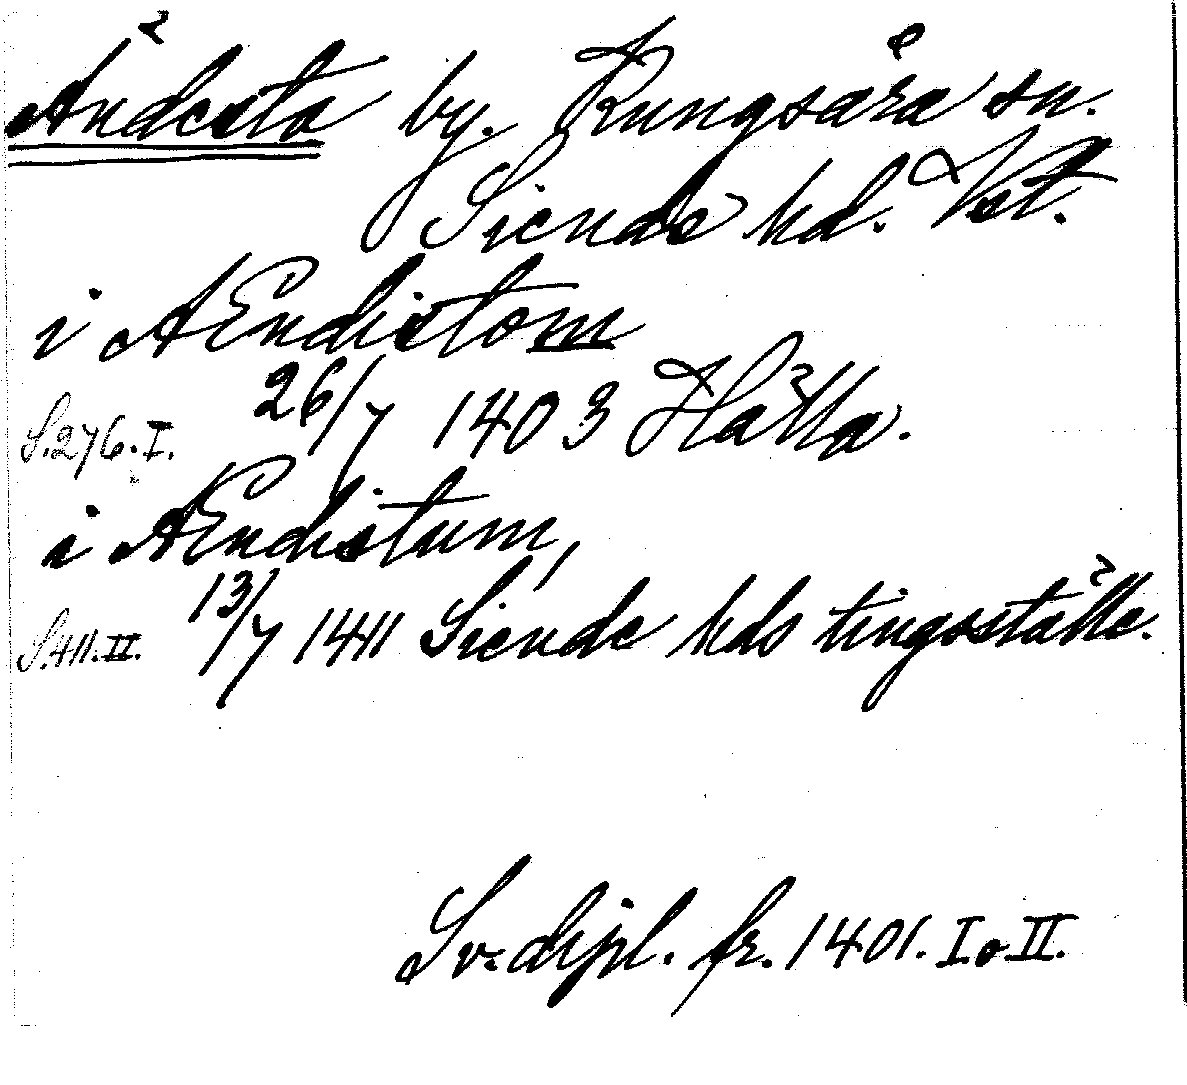 Ändesta by. Kungsåra sn.
Siende hd. Vst.
i AEndistom
S. 276. I. 26/7 1403 Hälla.
i AEndistum,
S. 411. II. 13/7 1411 Siende hds tingsställe.
Sv. dipl. fr. 1401. I. o II.